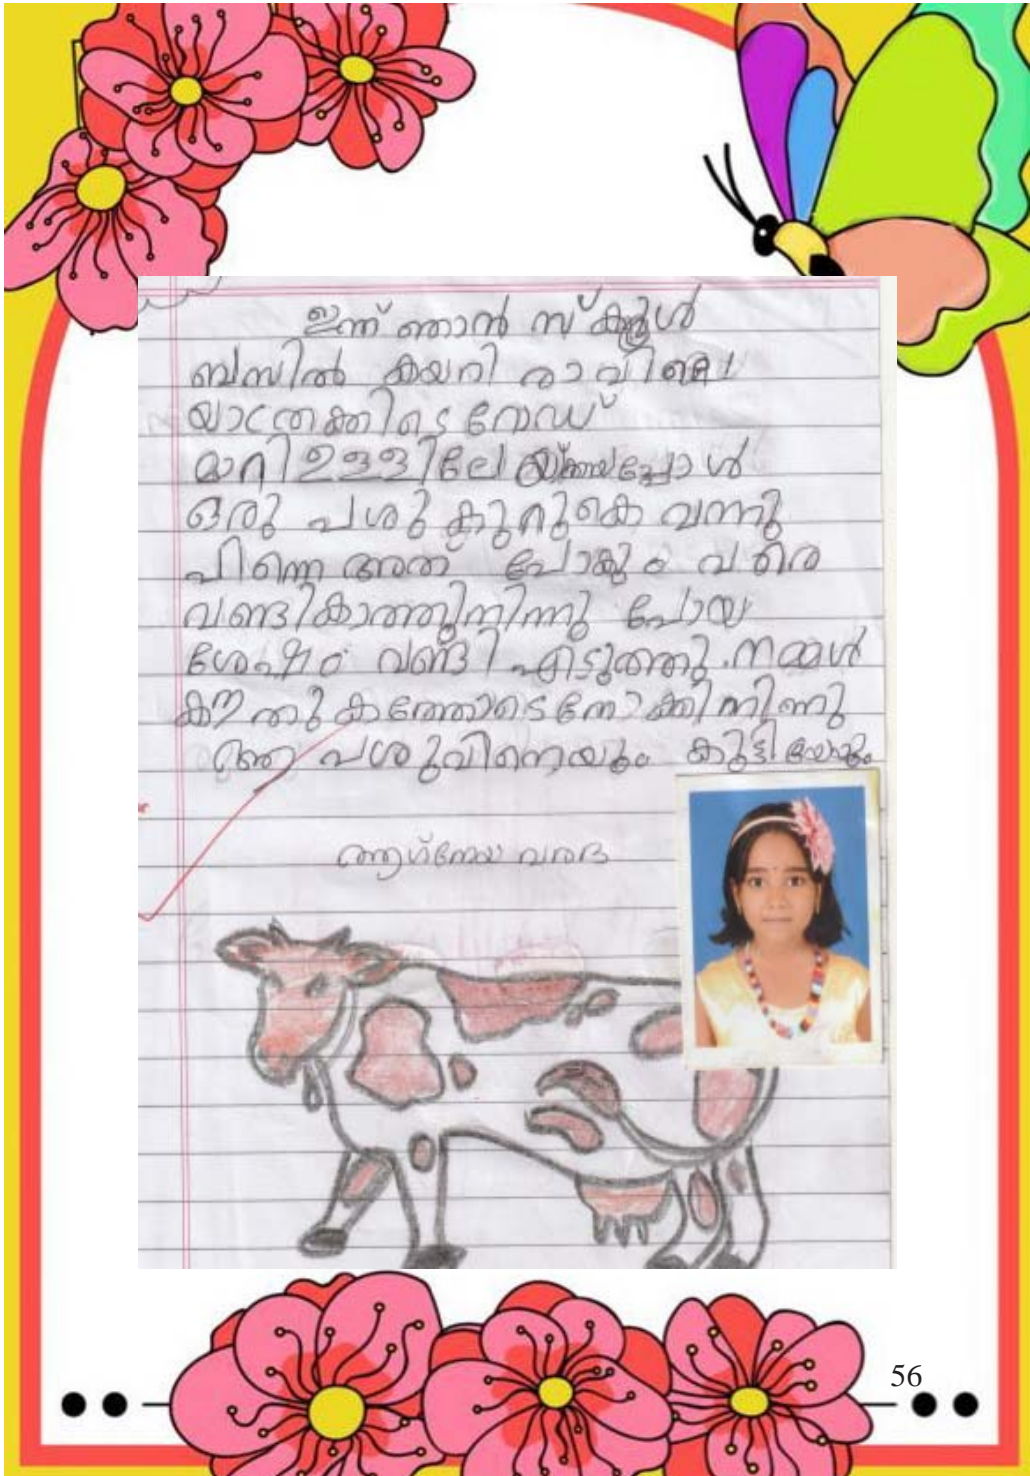 ഇന്ന് ഞാൻ സ്കൂൾ
ബസിൽ കയറി രാവിലെ
യാത്രക്കിടെ റോഡ്
മാറി ഉള്ളിലേ
ഒരു പശു കുറുകെ വന്നു
പിന്നെ അത് പോകും വരെ
വണ്ടികാത്തുനിന്നു പോയ
ശേഷം വണ്ടി എടുത്തു. നമ്മൾ
കൗതുകത്തോടെ നോക്കി നിന്നു
ആ പശുവിനെയും കുട്ടിയേയും
ആഗ്നേയ വരദ
56